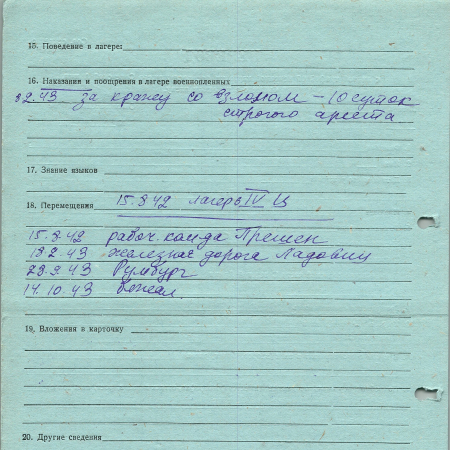 15. Поведение в лагере:
16. Наказания и поощрения в лагере военнопленных
за кражу со взломом — 10 суток
строгого ареста
17. Знание языков
18. Перемещения 15.8.42 лагерь IV Ц
15.8.42 рабоч. кома̄да
18.2.43 железная дорога
43 Румбург
14.10.43
19. Вложения в карточку
20. Другие сведения